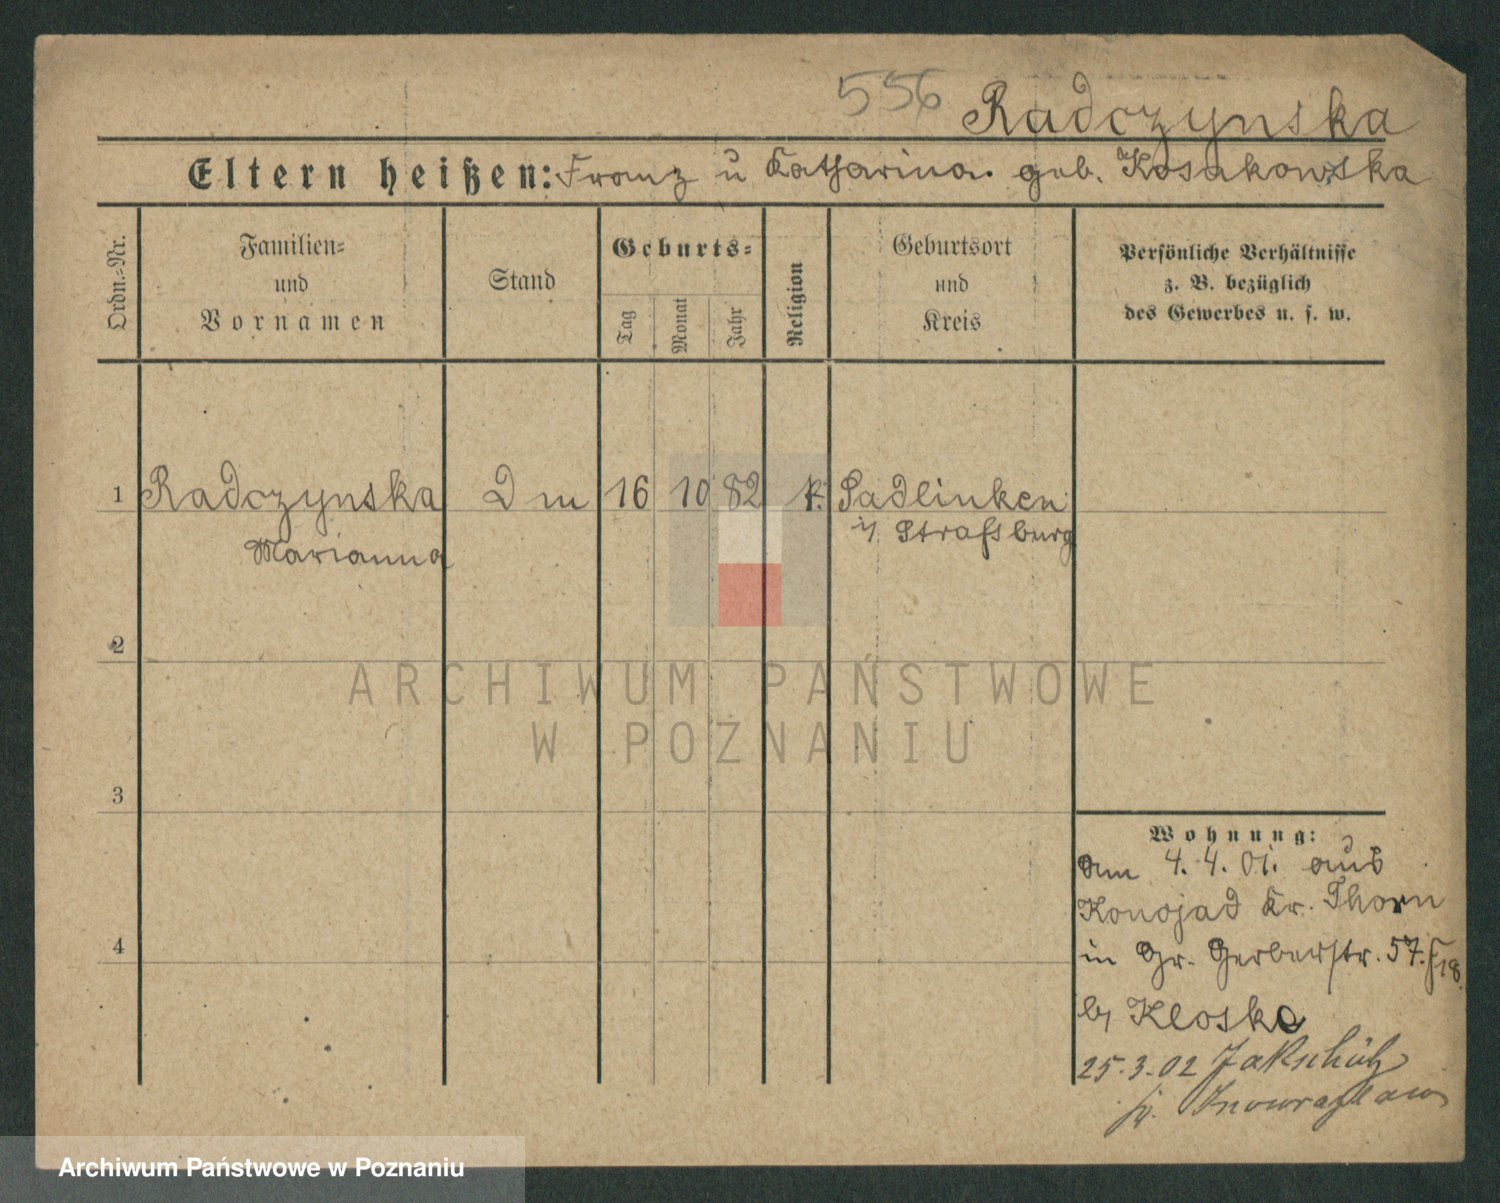 556 Radczynska
Eltern heißen: Franz u Katharina geb. Kosakowska
Ordn.-Nr.
Familien-
und
Vornamen
Stand
Geburts-
Tag
Monat
Jahr
Religion
Geburtsort
und
Kreis
Persönliche Verhältnisse
z. B. bezüglich
des Gewerbes u. s. w.
1 Radczynska D m 16 10 82 k. Sadlinken
Marianna
Straſsburg
2
3
4
ARCHIWUM PAŃSTWOWE
W POZNANIU
Wohnung:
am 4.4.01. aus
Konojad Kr. Thorn
in Gr. Gerberstr. 57.
Kloske
25.3.02 Jakschütz
Inowrazlaw
Archiwum Państwowe w Poznaniu